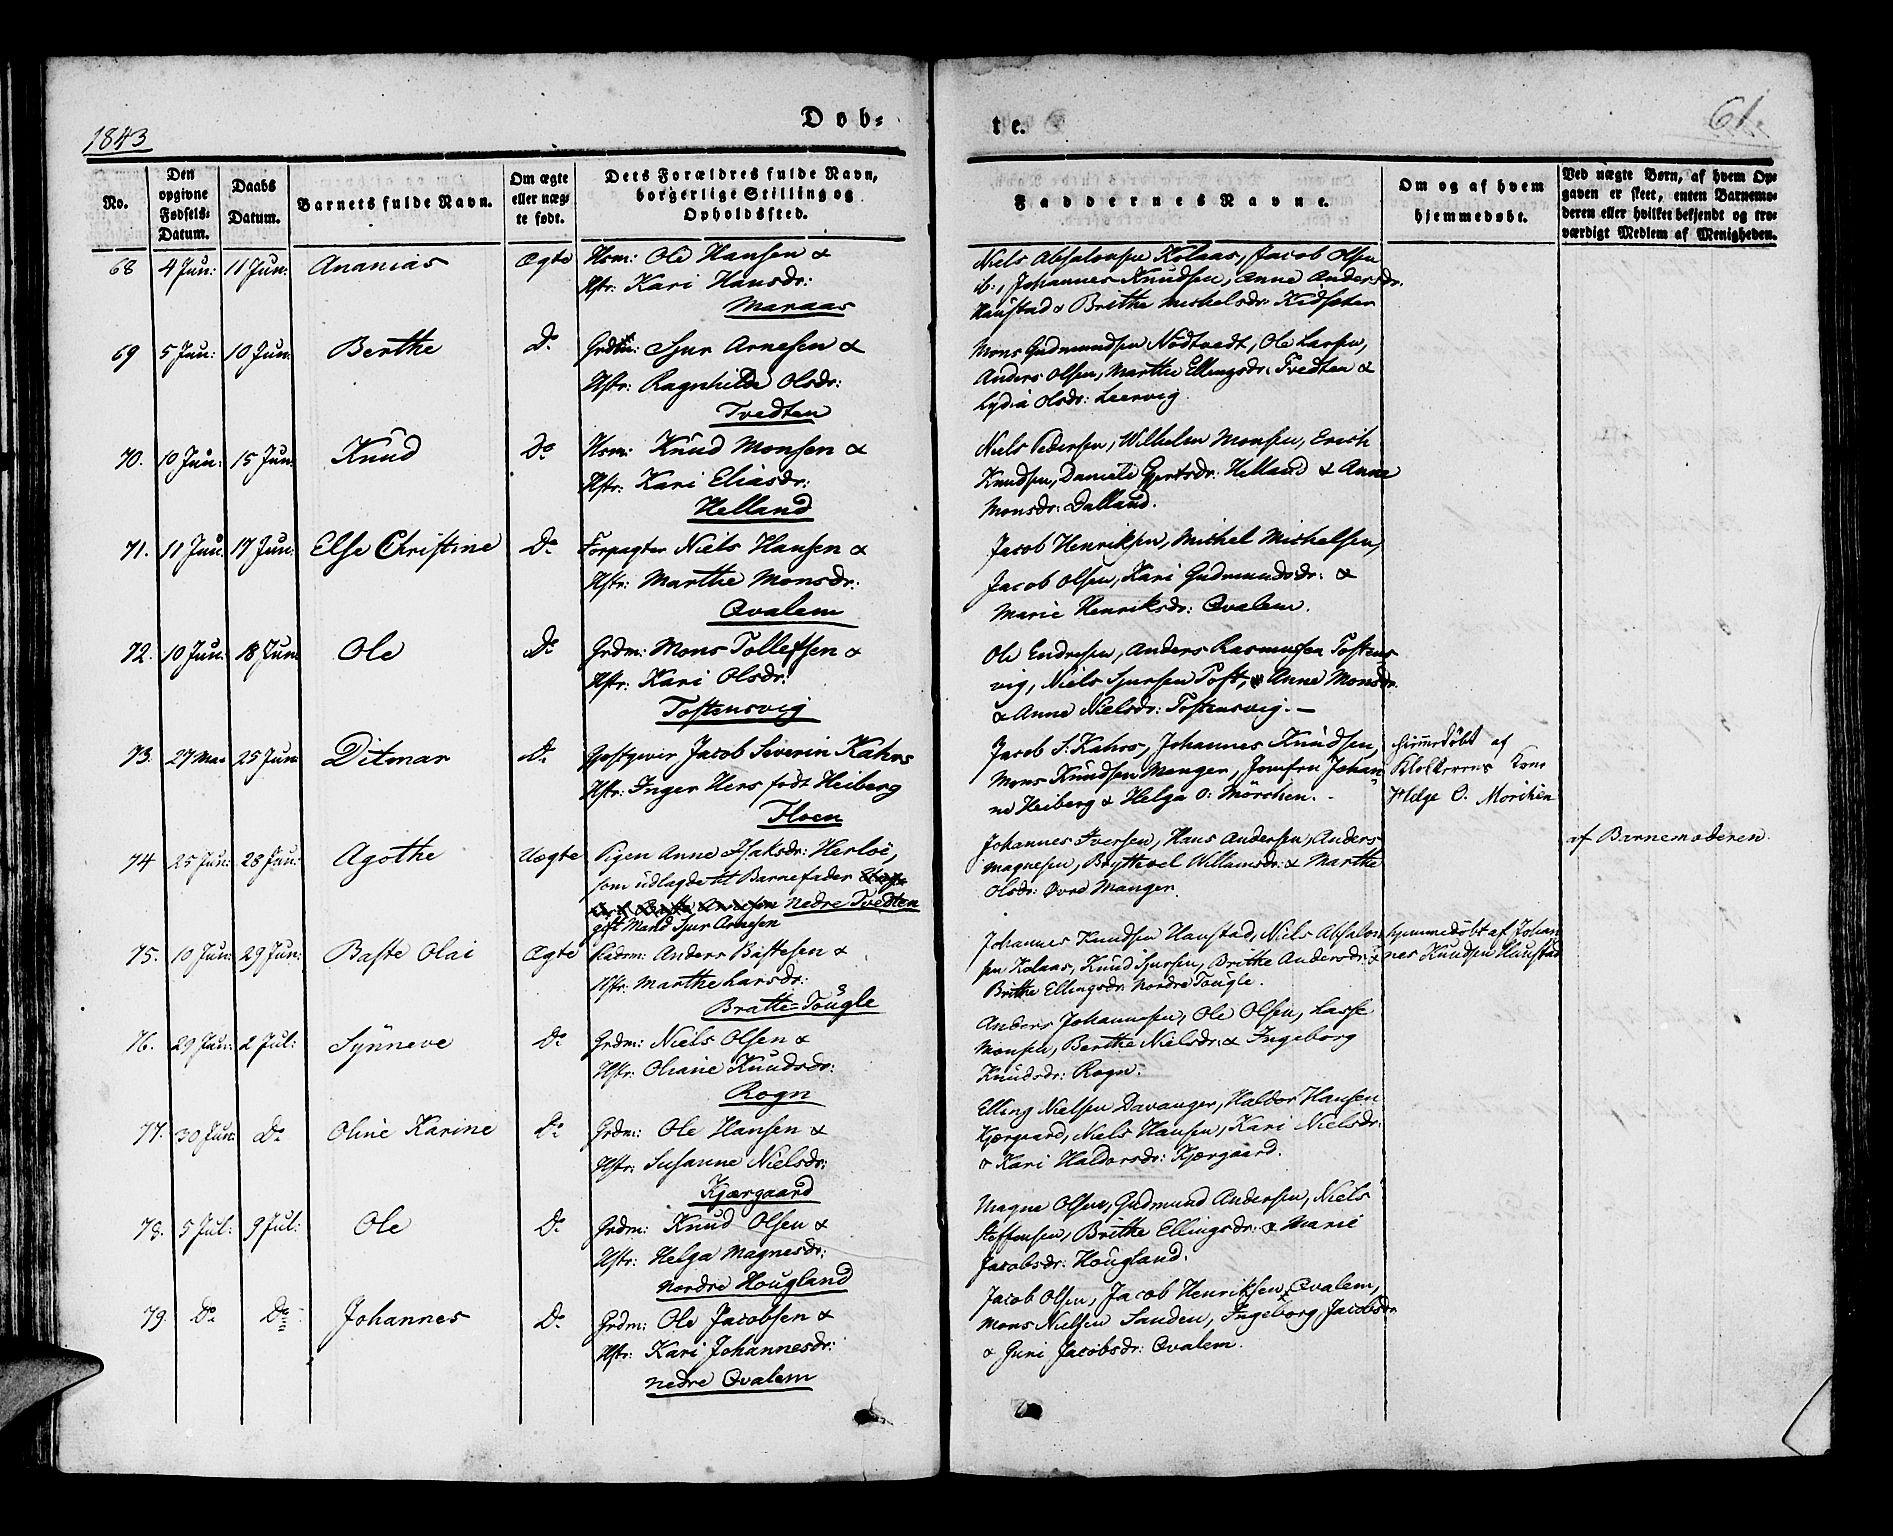 1843
Døb-
te.
61.
No.
Den opgivne Fødsels-Datum.
Daabs Datum.
Barnets fulde Navn.
Om ægte eller uægte født.
Dets Forældres fulde Navn, borgerlige Stilling og Opholdssted.
Faddernes Navne.
Om og af hvem hjemmedøbt.
Ved uægte Børn, af hvem Opgaven er skeet, enten Barnemoderen eller hvilket bekjendt og troværdigt Medlem af Menigheden.
68 4 Jun: 11 Jun: Ananias Ægte Hsm: Ole Hansen &
Hstr: Kari Hansdr:
Maraas
Niels Absalonsen Kolaas, Jacob Olsen
ib:, Johannes Knudsen, Anne Andersdr.
Haustad & Brithe Michelsdr: Kidsæter
69 5 Jun: 10 Jun: Berthe Do Grdm: Sjur Arnesen &
Hstr: Ragnhilda Olsdr:
Tvedten
Mons Gudmundsen Nødtvedt, Ole Larsen,
Anders Olsen, Marthe Ellingsdr: Tvedten &
Lydia Olsdr: Leervig.
70. 10 Jun: 15 Jun: Knud Do Hsm: Knud Monsen &
Hstr: Kari Eliasdr:
Helland
Niels Pedersen, Wilhelm Monsen, Erich
Knudsen, Daniele Gjertsdr: Helland & Anne
Monsdr: Dalland.
71. 11 Jun: 17 Jun: Else Christine Do Forpagter Niels Hansen &
Hstr: Marthe Monsdr:
Qvalem
Jacob Henriksen, Michel Michelsen,
Jacob Olsen, Kari Gudmundsdr: &
Marie Henriksdr: Qvalem.
72. 10 Jun: 18 Jun: Ole Do Grdm: Mons Tollefsen &
Hstr: Kari Olsdr:
Tostensvig
Ole Endresen, Anders Rasmusen Tostens
vig, Niels Sjursen Toft, Anne Monsdr.
& Anne Nielsdr: Tostensvig. —
73. 27 Mai 25 Jun: Ditmar Do Gjestgiver Jacob Severin Kahrs
Hstr: Inger Hers født Heiberg
Floen
Jacob S: Kahrs, Johannes Knudsen,
Mons Knudsen Manger, Jomfru Johan
ne Heiberg & Helga O: Mörchen. -
Hjemmedöbt af
Klokkerens Kone
Helge O. Morchen
74 25 Jun: 28 Jun: Agothe Uægte Pigen Anne Isaksdr: Herloe,
som udlagde til Barnefader
nedre Tvedten
gift Mand Sjur Arnesen
Johannes Iversen, Hans Andersen, Anders
Magnesen, Brythevel Willamsdr: & Marthe
Olsdr: Øvre Manger.
af Barnemoderen.
75. 10 Jun: 29 Jun: Baste Olai Ægte Anders Bastesen &
Hstr: Marthe Larsdr:
Bratte-Tougle
Johannes Knudsen Haustad, Niels Absalon
sen Kolaas, Knud Sjursen, Brithe Andersdr: &
Brithe Ellingsdr: Nordre Tougle.
hjemmedöbt af Johan
nes Knudsen Haustad
76. 29 Jun: 2 Jul: Synneve Do Grdm: Niels Olsen &
Hstr: Oliane Knudsdr:
Rogn
Anders Johannesen, Ole Olsen, Lasse
Monsen, Berthe Nielsdr: & Ingeborg
Knudsdr: Rogn.
77. 30 Jun: Do Oline Karine Do Grdm: Ole Hansen &
Hstr: Susanne Nielsdr:
Kjærgaard
Elling Nielsen Davanger, Haldor Hansen
Kjærgaard, Niels Hansen, Kari Nielsdr:
& Kari Haldorsdr: Kjærgaard.
78. 5 Jul: 9 Jul: Ole Do Grdm: Knud Olsen &
Hstr: Helga Magnesdr:
Nordre Hougland
Magne Olsen, Gudmund Andersen, Niels
Steffensen, Brithe Ellingsdr: & Marie
Jacobsdr: Hougland.
79. Do Do Johannes Do Grdm: Ole Jacobsen &
Hstr: Kari Johannesdr:
nedre Qvalem
Jacob Olsen, Jacob Henriksen Qvalem,
Mons Nielsen Sanden, Ingeborg Jacobsdr
& Guri Jacobsdr: Qvalem.